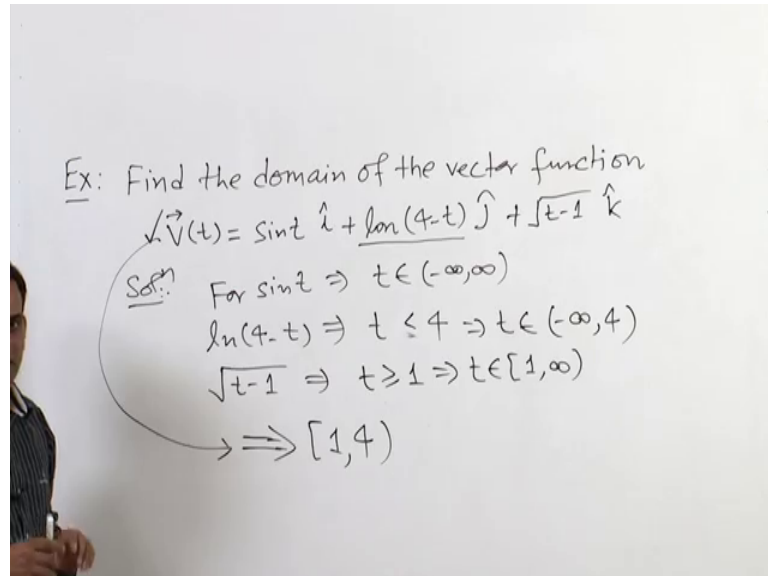 Ex: Find the domain of the vector function
✓ v⃗(t) = Sint î + lon(4-t) ĵ + √t-1 k̂
Solⁿ: For sint ⇒ t ∈ (-∞,∞)
ln(4-t) ⇒ t ≤ 4 ⇒ t ∈ (-∞,4)
√t-1 ⇒ t ≥ 1 ⇒ t ∈ [1,∞)
⇒ [1,4)